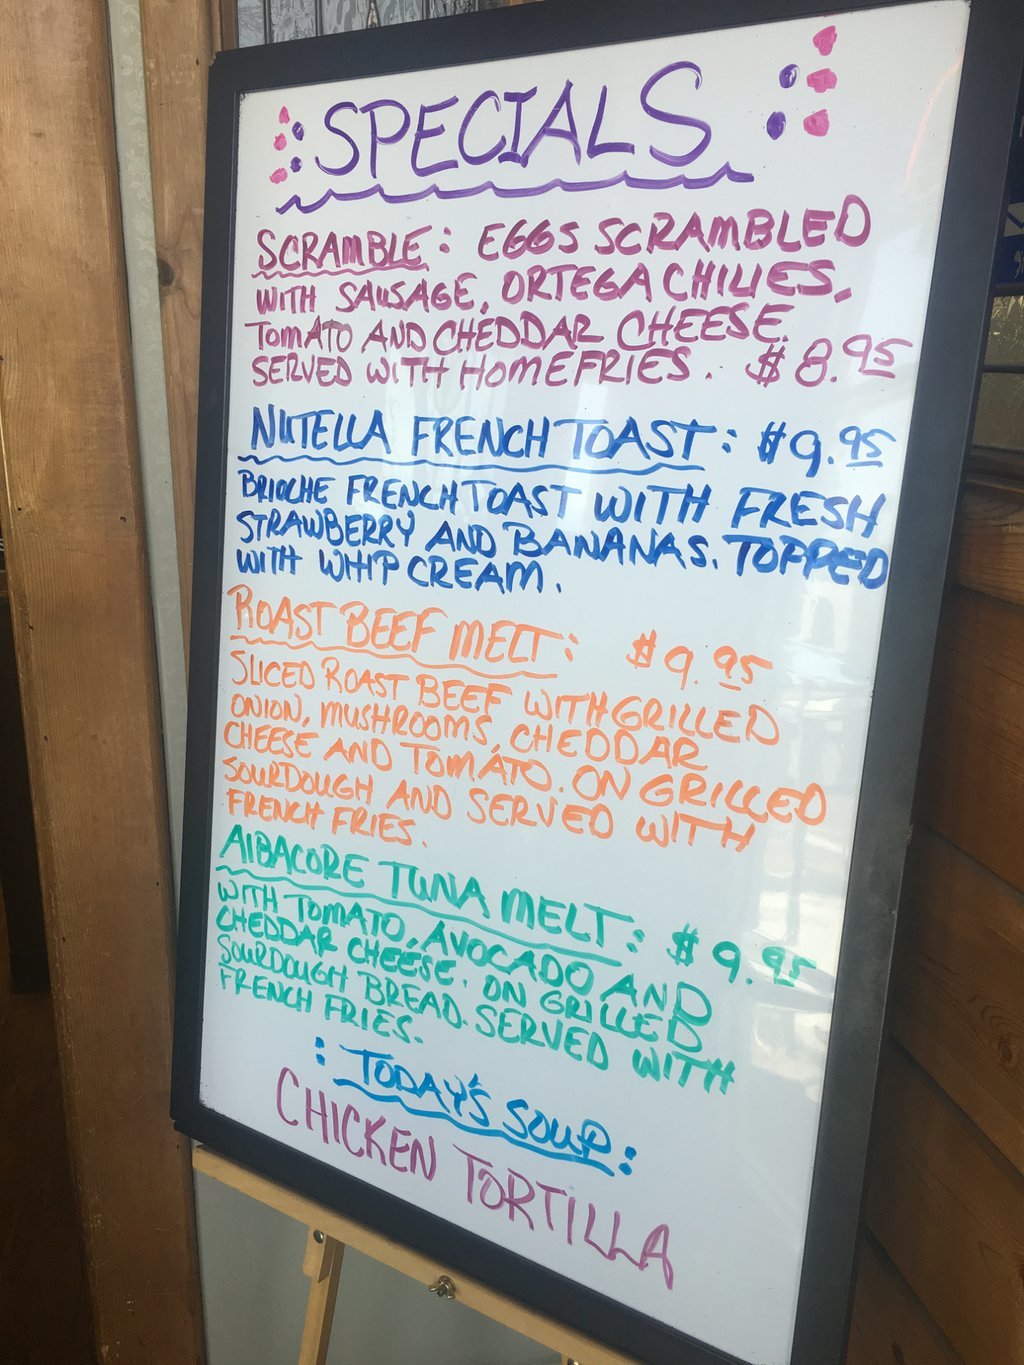 SPECIALS
SCRAMBLE: EGGS SCRAMBLED
WITH SAUSAGE, ORTEGA CHILIES,
TOMATO AND CHEDDAR CHEESE.
SERVED WITH HOMEFRIES. $8.95
NUTELLA FRENCH TOAST: $9.95
BRIOCHE FRENCH TOAST WITH FRESH
STRAWBERRY AND BANANAS. TOPPED
WITH WHIP CREAM.
ROAST BEEF MELT: $9.95
SLICED ROAST BEEF WITH GRILLED
ONION, MUSHROOMS, CHEDDAR
CHEESE AND TOMATO. ON GRILLED
SOURDOUGH AND SERVED WITH
FRENCH FRIES.
AlBACORE TUNA MELT: $9.95
WITH TOMATO, AVOCADO AND
CHEDDAR CHEESE. ON GRILLED
SOURDOUGH BREAD. SERVED WITH
FRENCH FRIES.
: TODAY'S SOUP:
CHICKEN TORTILLA